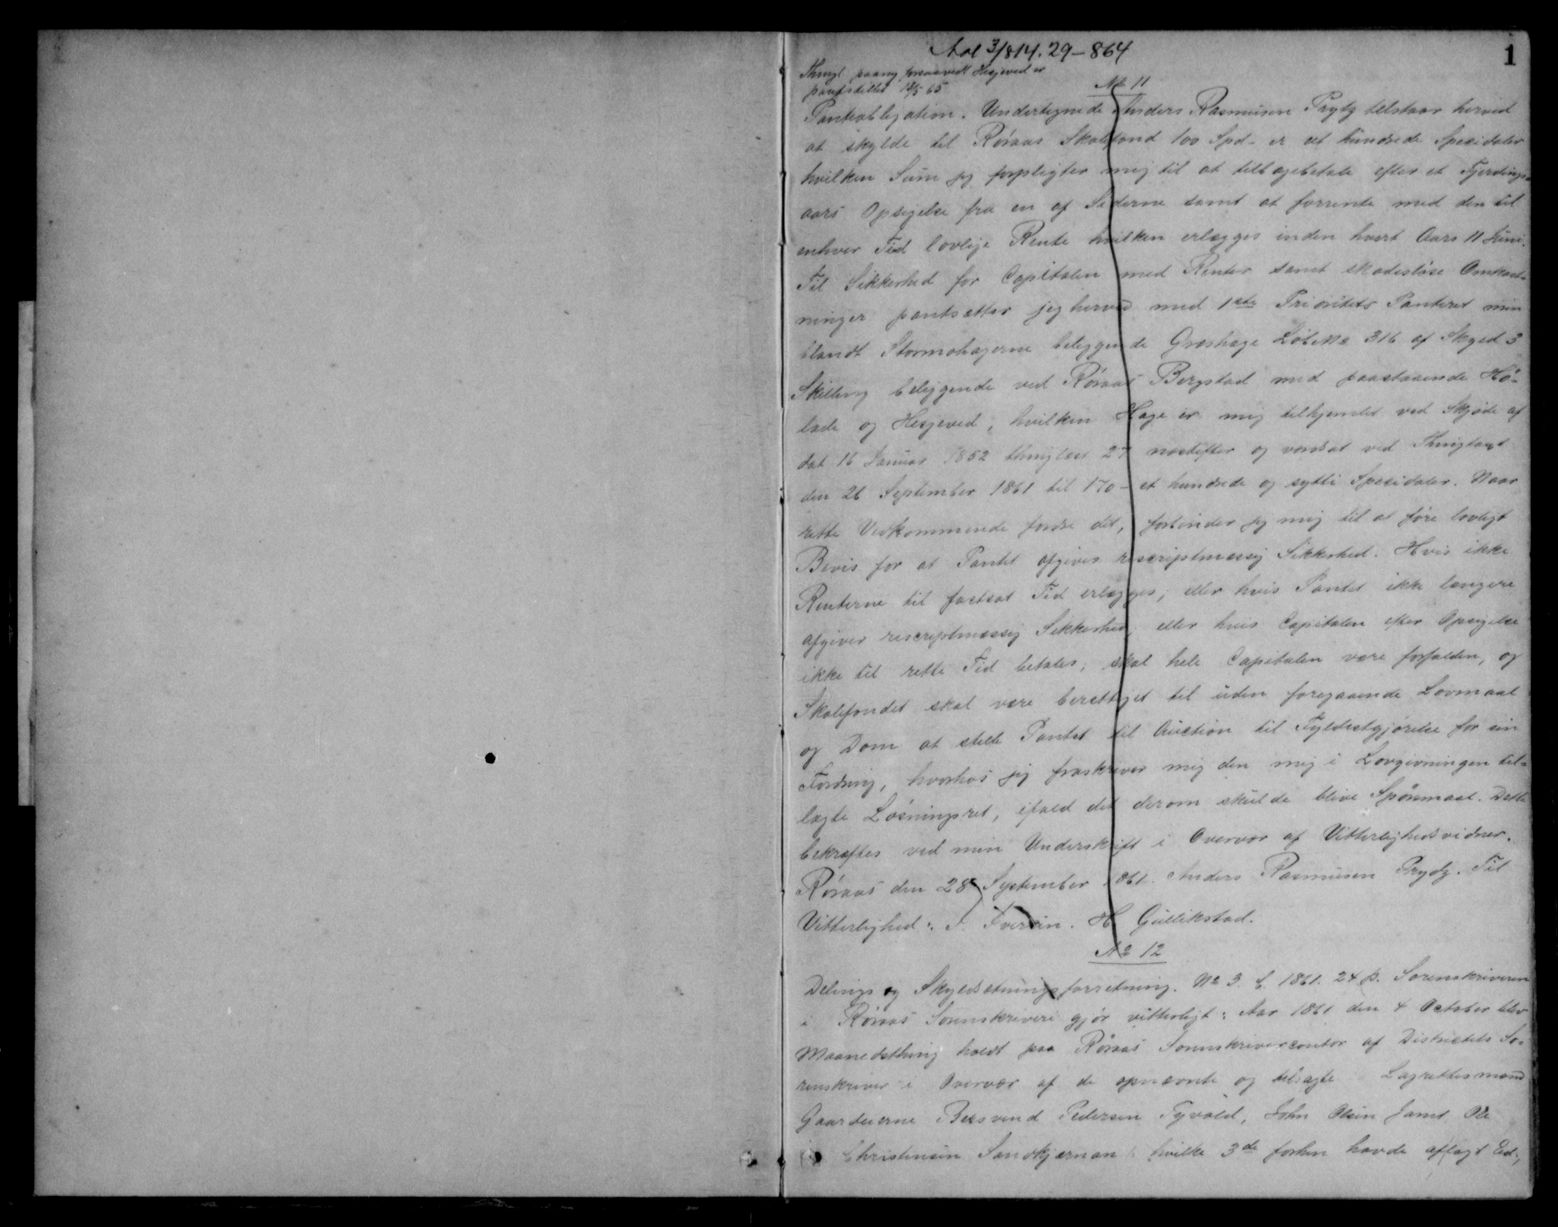 1
Aol 3/8 14. 29-864
pantstillet 12/5 65
No 11
Pantobligation. Undertegnede Anders Rasmusen Prytz tilstaar herved
at skylde til Röraas Skolefond 100 Spd. er et hundrede Specidaler
hvilken Sum jeg forpligter mig til at tilbagebetale efter et Fjerdings-
aars Opsigelse fra en af Siderne samt at forrente med den til
enhver Tid lovlige Rente hvilken erlægges inden hvert Aars 11 Juni.
Til Sikkerhed for Capitalen med Renter samt skadeslöse Omkost-
ninger pantsætter jeg herved med 1ste Prioritets Panteret min
blandt Stormohagerne beliggende Græshage LöbeNo 316 af Skyld 3
Skilling beliggende ved Röraas Bergstad med paastaaende Hö-
lade og Hesjeved, hvilken Hage er mig tilhjemlet ved Skjöde af
dat 16 Januar 1852 thinglæst 27 næstefter og værdsat ved Thingtaxt
den 26 September 1861 til 170 - et hundrede og sytti Specidaler. Naar
rette Vedkommende fordre det, forbinder jeg mig til at före lovligt
Bevis for at Pantet afgiver rescriptmæssig Sikkerhed. Hvis ikke
Renterne til fastsat Tid erlægges, eller hvis Pantet ikke længere
afgiver rescriptmæssig Sikkerhed, eller hvis Capitalen efter Opsigelse
ikke til rette Tid betales, skal hele Capitalen være forfalden, og
Skolefondet skal være berettiget til uden foregaaende Lovmaal
og Dom at stille Pantet til Auction til Fyldestgjörelse for sin
Fordring, hvorhos jeg fraskriver mig den mig i Lovgivningen til-
lagte Lösningsret, ifald det derom skulde blive Spörsmaal. Dette
bekræftes ved min Underskrift i Overvær af Vitterlighedsvidner.
Röraas den 28 September 1861. Anders Rasmusen Prytz. Til
Vitterlighed: I. Iversen. H Gullikstad.
No 12
Delings og Skyldsætningsforretning. No 3. 1861. 24 ß. Sorenskriveren
i Röraas Sorenskriveri gjör vitterligt: Aar 1861 den 4 October blev
Maanedsthing holdt paa Röraas Sorenskrivercontor af Districtets So-
renskriver i Overvær af de opnævnte og tilsagte Lagrettesmænd
Gaardeierne Bersvend Pedersen Tyvold, John Olsen Jamt Ole
Christensen Sandkjernan hvilke 3de forhen havde aflagt Eed,